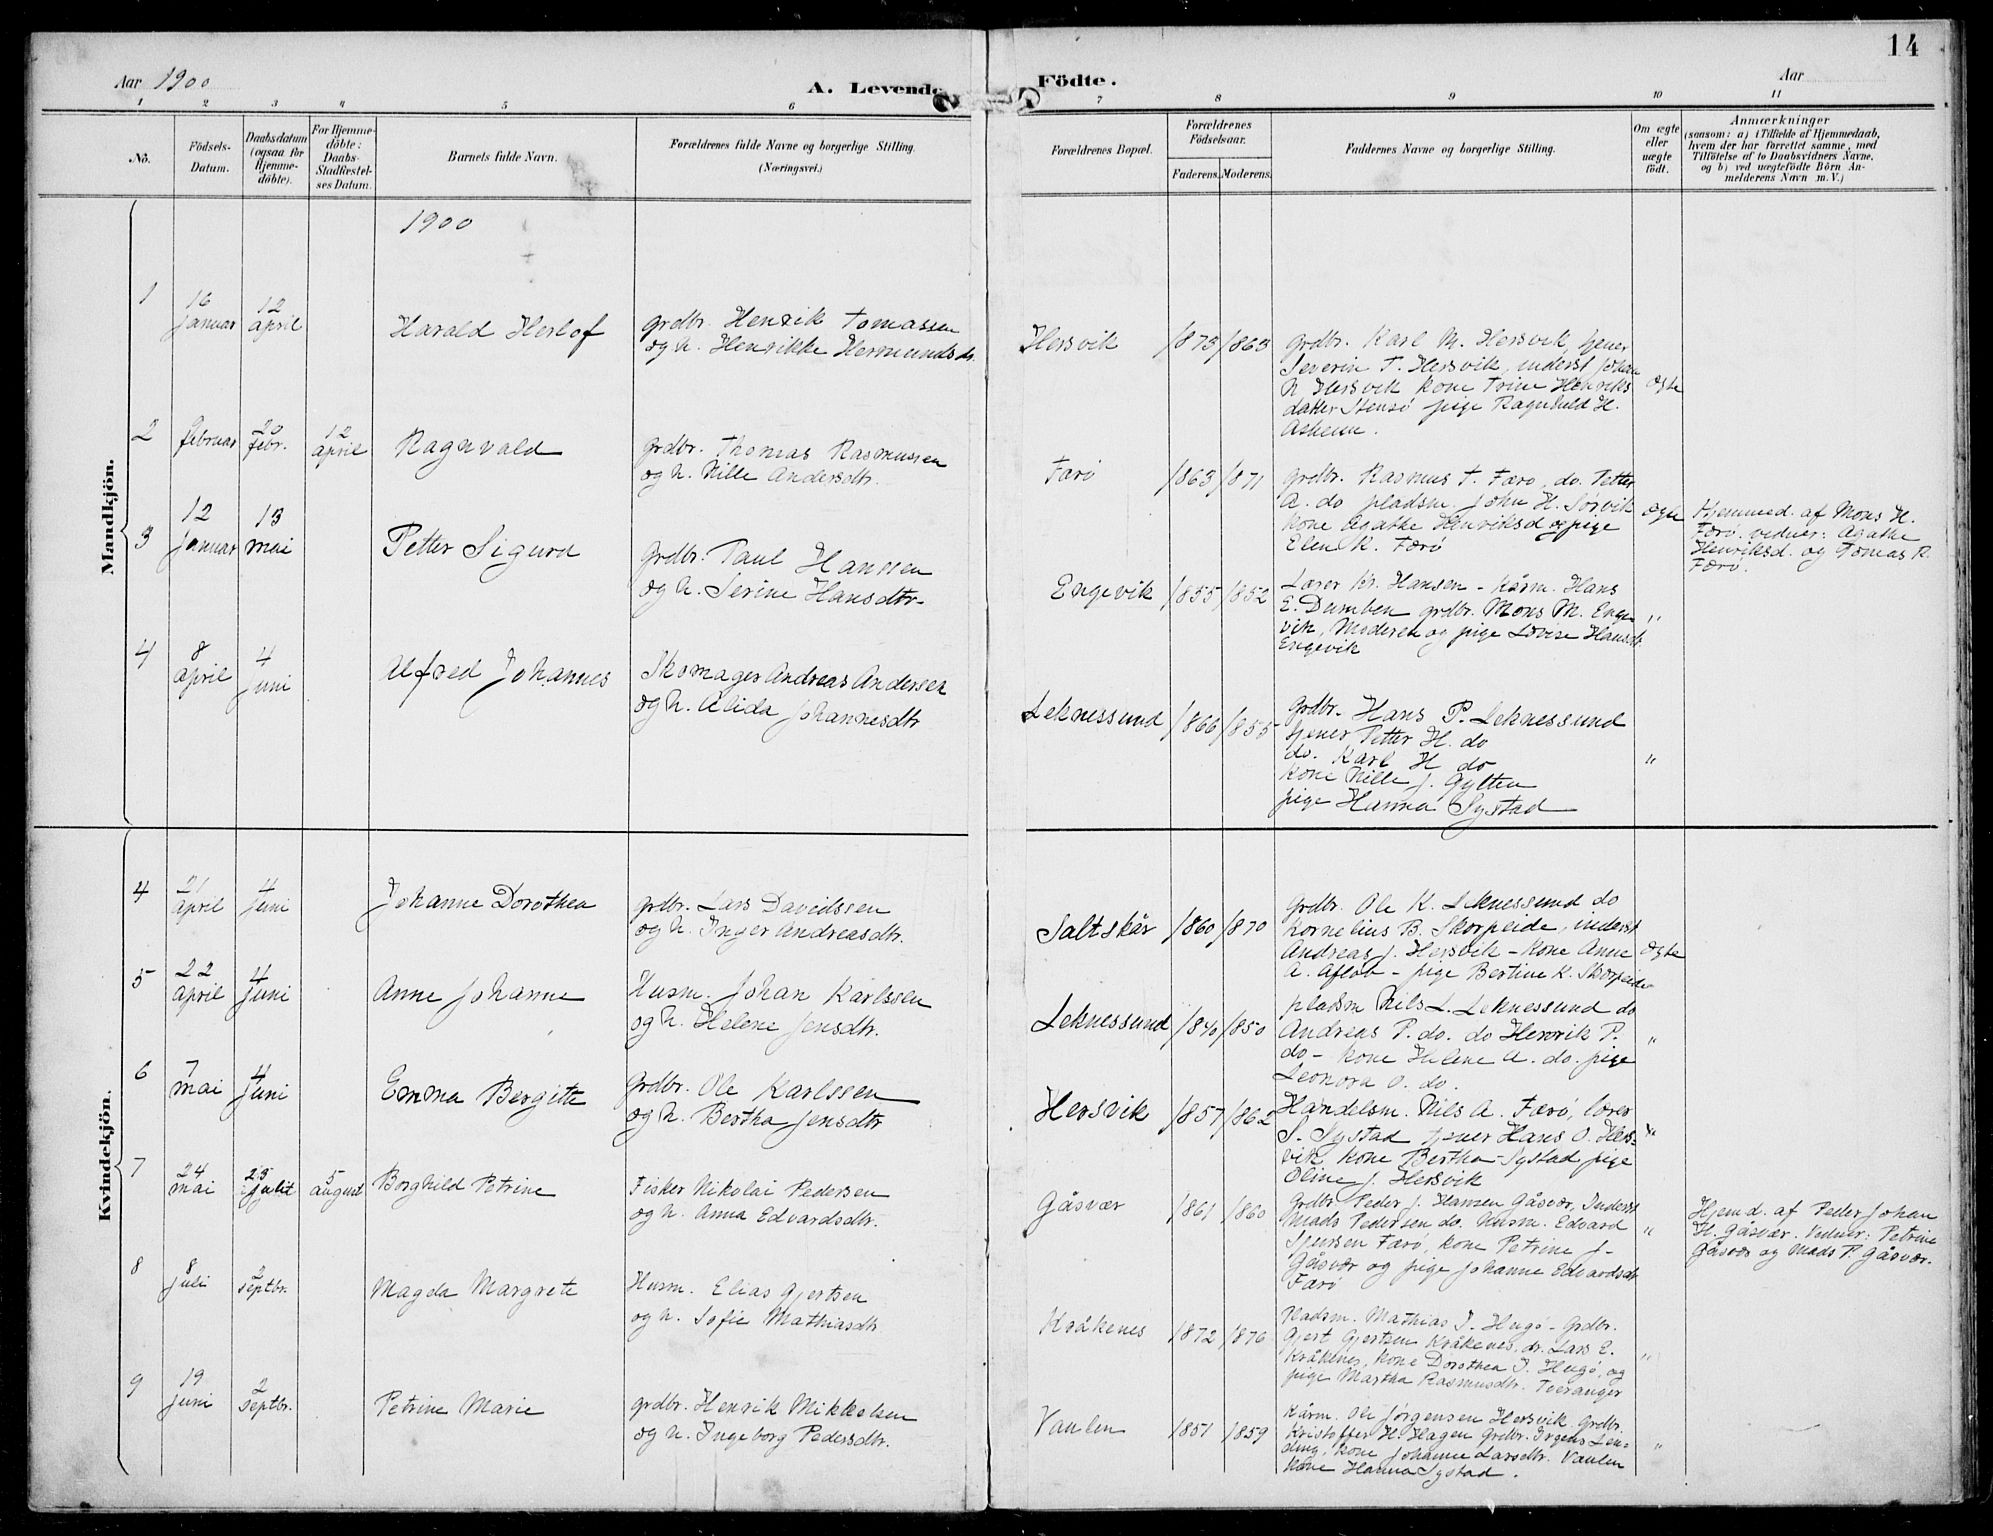 14
Aar 1900
A. Levende
Födte.
Aar
1 2 3 4 5 6 7 8 9 10 11
Nô.
Födsels-
Datum.
Daabsdatum
(ogsaa för
Hjemme-
döbte).
For Hjemme-
döbte:
Daabs-
Stadfæstel-
ses Datum.
Barnets fulde Navn.
Forældrenes fulde Navne og borgerlige Stilling.
(Næringsvei.)
Forældrenes Bopæl.
Forældrenes
Födselsaar.
Faderens. Moderens.
Faddernes Navne og borgerlige Stilling.
Om ægte
eller
uægte
födt.
Anmærkninger
(saasom: a) i Tilfælde af Hjemmedaab,
hvem der har forrettet samme, med
Tilföielse af to Daabsvidners Navne,
og b) ved uægtefödte Börn An-
melderens Navn m. V.)
Mandkjön.
1900
1
16
januar
12
april
Harald Herlof
grdbr. Henrik Tomassen
og h. Henrikke Hermundsdr.
Hersvik
1875
1865
grdbr. Karl M. Hersvik, tjener
Severin T. Hersvik, inderst Johan
N Hersvik kone Trine Henriks
datter Stensö pige Ragnhild H.
Askeim.
ægte
2
februar
20
febr.
12
april
Ragnvald
grdbr. Thomas Rasmussen
og h. Nille Andersdtr.
Færö
1863
1871
grdbr. Rasmus T. Færö, do. Petter
A. do pladsm. John H. Sørvik
kone Agathe Henriksd og pige
Elen K. Færö
ægte
Hjemmed. af Mons H.
Færö. vidner: Agathe
Henriksd. og Tomas R.
Færö.
3
12
januar
13
mai
Petter Sigurd
grdbr. Paul Hanssen
og h. Serine Hansdtr.
Engevik
1855
1852
Lærer Kr. Hansen - Kårm. Hans
E. Dumben grdbr. Mons M. Enge
vik, Moderen og pige Lovise Hansdtr.
Engevik
"
4
8
april
4
juni
Alfred Johannes
Skomager Andreas Andersen
og h. Alida Johannesdtr
Leknessund
1866
1855
grdbr. Hans P. Leknessund
tjener Petter H. do
do. Karl H do
kone Nille J. Gylten
pige Hanna Systad
"
Kvindekjön.
4
21
april
4
juni
Johanne Dorothea
grdbr. Lars Davidssen
og h. Inger Andreasdtr.
Saltskår
1860
1870
grdbr. Ole K. Leknessund do
Kornelius B. Skorpeide, inderst
Andreas J. Hersvik - kone Anne
A. Afløb - pige Bertine K. Skorpeide
ægte
5
22
april
4
juni
Anne Johanne
Husm. Johan Karlssen
og h. Helene Jensdtr.
Leknessund
1840
1850
pladsm Nils L. Leknessund do
Andreas P. do. do Henrik P.
do - kone Helene A. do. pige
Leonora O. do.
"
6
7
mai
4
juni
Emma Bergitte
grdbr. Ole Karlssen
og h. Bertha Jensdtr
Hersvik
1857
1862
Handelsm. Nils A. Færö, lærer
S. Systad tjener Hans O. Hers-
vik kone Bertha Systad pige
Oline J. Hersvik
"
7
24
mai
23
juli
5
august
Borghild Petrine
Fisker Nikolai Pedersen
og h. Anna Edvardsdtr.
Gåsvær
1861
1860
Grdbr. Peder J. Hansen Gåsvær, Inderst
Mads Pedersen do. Husm. Edvard
Sjursen Færö, kone Petrine J-
Gåsvær og pige Johanne Edvardsdr
Færö
"
Hjemd. af Peder Johan
H. Gåsvær. Vidner: Petrine
Gåsvær og Mads P. Gåsvær.
8
8
juli
2
septbr.
Magda Margrete
Husm. Elias Gjertsen
og h. Sofie Mathiasdtr
Kråkenes
1872
1876
Pladsm. Mathias I. Hugö - Grdbr.
Gjert Gjertsen Kråkenes, do. Lars E.
Kråkenes, kone Dorothea I. Hugö, og
pige Martha Rasmusdtr. Tveranger
"
9
19
juni
2
septbr.
Petrine Marie
grdbr. Henrik Mikkelsen
og h. Ingeborg Pedersdtr.
Vaulen
1851
1859
Kårm. Ole Jørgensen Hersvik. Grdbr.
Kristoffer H. Hagen Grdbr. Irgens Len-
ding, kone Johanne Larsdtr. Vaulen
kone Hanna Systad.
"